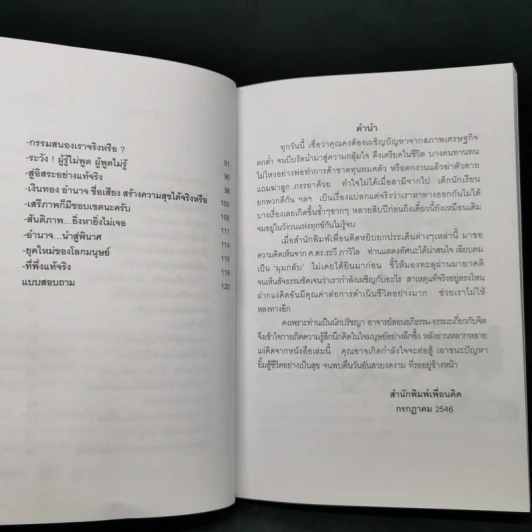 -กรรมสนองเราจริงหรือ ?
-ระวัง ! ผู้รู้ไม่พูด ผู้พูดไม่รู้ 91
-สู่อิสระอย่างแท้จริง 95
-เงินทอง อำนาจ ชื่อเสียง สร้างความสุขได้จริงหรือ 98
-เสรีภาพก็มีขอบเขตนะครับ 100
-สันติภาพ...ยิ่งหายิ่งไม่เจอ 105
-อำนาจ...นำสู่พินาศ 111
-ยุคใหม่ของโลกมนุษย์ 114
-ที่พึ่งแท้จริง 116
แบบสอบถาม 118
120
คำนำ
ทุกวันนี้ เชื่อว่าคุณคงต้องเผชิญปัญหาจากสภาพเศรษฐกิจ
ตกต่ำ จนบีบรัดนำมาสู่ความกลุ้มใจ ตึงเครียดในชีวิต บางคนทานทน
ไม่ไหวอย่างพ่อทำการค้าขาดทุนหมดตัว หรือตกงานแล้วฆ่าตัวตาย
แถมฆ่าลูก ภรรยาด้วย ทำใจไม่ได้เมื่อสามีจากไป เด็กนักเรียน
ยกพวกตีกัน ฯลฯ เป็นเรื่องแปลกแต่จริงว่าเราหาทางออกกันไม่ได้
บางเรื่องเลยเกิดขึ้นซ้ำๆซากๆ หลายสิบปีก่อนถึงเดี๋ยวนี้ยังเหมือนเดิม
จมอยู่ในวังวนแห่งทุกข์กันไม่รู้จบ
เมื่อสำนักพิมพ์เพื่อนคิดหยิบยกประเด็นต่างๆเหล่านี้ มาขอ
ความคิดเห็นจาก ศ.ดร.ระวี ภาวิไล ท่านแสดงทัศนะได้น่าสนใจ เฉียบคม
เป็น 'มุมกลับ' ไม่เคยได้ยินมาก่อน ชี้ให้มองทะลุผ่านมายาคติ
จนเห็นสัจธรรมชัดเจนว่าเรากำลังเผชิญกับอะไร สาเหตุแท้จริงอยู่ตรงไหน
ฝากแง่คิดอันมีคุณค่าต่อการดำเนินชีวิตอย่างมาก ช่วยเราไม่ให้
หลงทางอีก
คงเพราะท่านเป็นนักปรัชญา อาจารย์สอนอภิธรรม-ธรรมะเกี่ยวกับจิต
จึงเข้าใจการเกิดความรู้สึกนึกคิดในใจมนุษย์อย่างลึกซึ้ง หลังอ่านหลากหลาย
แง่คิดจากหนังสือเล่มนี้ คุณอาจเกิดกำลังใจจะต่อสู้ เอาชนะปัญหา
ยิ้มสู้ชีวิตอย่างเป็นสุข จนพบคืนวันอันสวยงดงาม ที่รออยู่ข้างหน้า
สำนักพิมพ์เพื่อนคิด
กรกฎาคม 2546